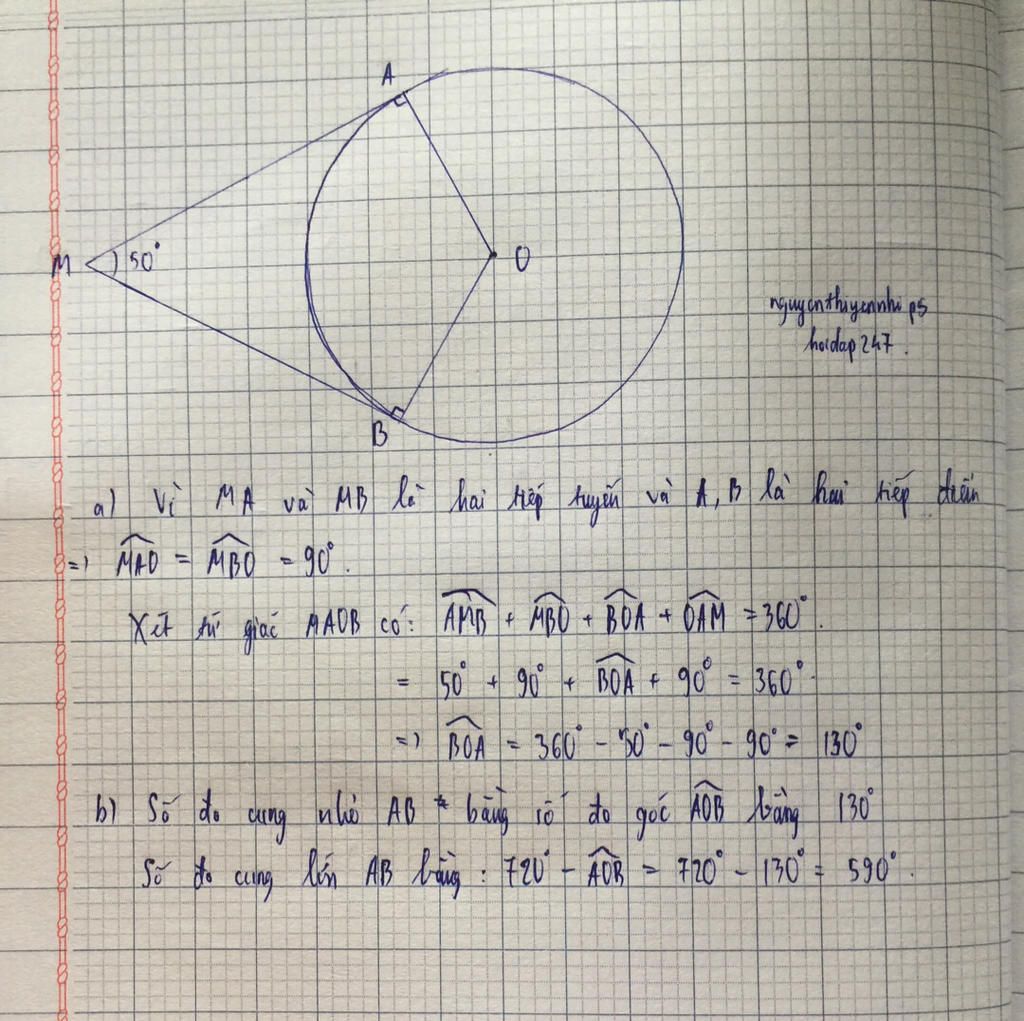 A
M 50° O
nguyenthuyennhi p5
hoidap247.
B
a) Vì MA và MB là hai tiếp tuyến và A, B là hai tiếp điểm
=> \widehat{MAO} = \widehat{MBO} = 90°.
Xét tứ giác MAOB có: \widehat{AMB} + \widehat{MBO} + \widehat{BOA} + \widehat{OAM} = 360°.
= 50° + 90° + \widehat{BOA} + 90° = 360°.
=> \widehat{BOA} = 360° - 50° - 90° - 90° = 130°
b) Số đo cung nhỏ AB bằng số đo góc \widehat{AOB} bằng 130°
Số đo cung lớn AB bằng: 720° - \widehat{AOB} = 720° - 130° = 590°.